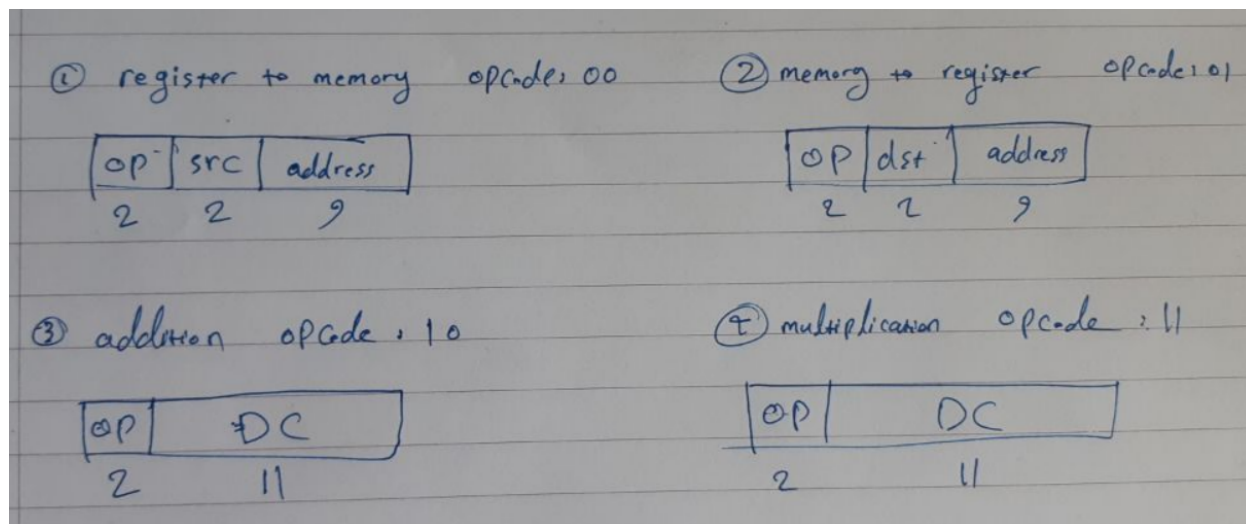 ① register to memory opcode: 00
op src address
2 2 9
② memory to register opcode: 01
op dst address
2 2 9
③ addition opcode: 10
op DC
2 11
④ multiplication opcode: 11
op DC
2 11